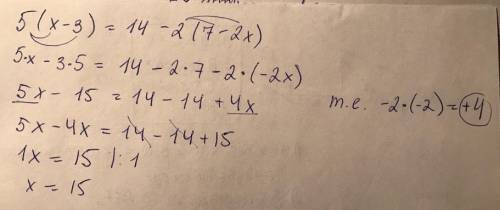 5(x-3) = 14 - 2(7-2x)
5·x - 3·5 = 14 - 2·7 - 2·(-2x)
5x - 15 = 14 - 14 + 4x
т.е. -2·(-2) = +4
5x - 4x = 14 - 14 + 15
1x = 15 |:1
x = 15